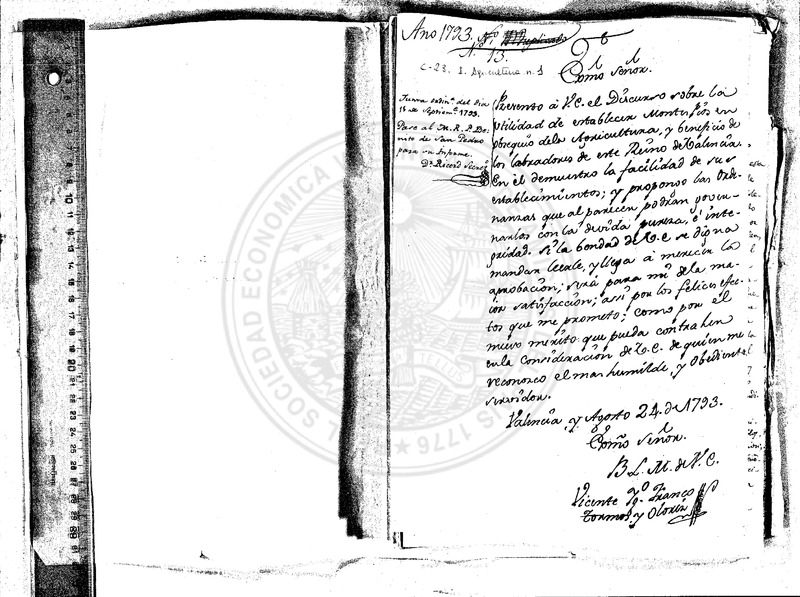 Año 1793. Nº Duplicado
Nº 13.
C-23. I. Agricultura n. 1
Exmo Señor.
Junta ordinª del dia
de Septiemᵉ 1793.
Pase al M. R. P. Be-
nito de San Pedro
para su Informe.
Dn Ricord Secretº
Presento à V.E. el Discurso sobre la
utilidad de establecer Montepios en
obsequio dela Agricultura, y beneficio de
los labradores de este Reino de Valencia.
En èl demuestro la facilidad de sus
establecimientos; y propongo las Orde-
nanzas que al parecer podràn gover-
narlos con la devida pureza, è inte-
gridad. Si la bondad de V.E. se digna
mandar leerle, y llega à merecer la
aprobacion; serà para mi dela ma-
ior satisfaccion; asi por los felices efec-
tos que me prometo; como por el
nuevo merito que pueda contraher
enla Consideracion de V.E. de quien me
reconozco el mas humilde, y Obediente
servidor.
Valencia, y Agosto 24. de 1793.
Exmo Señor.
B. L. M. de V.E.
Vicente Franco
Tormo, y Oloriz
SOCIEDAD ECONOMICA
1776